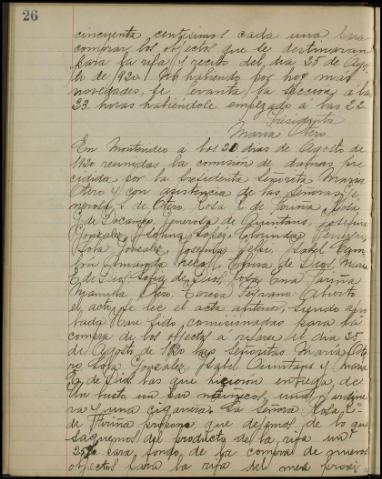 26
cincuenta centésimos cada una para
comprar los objetos que se destinaran
para la rifa y recibo del dia 25 de Ago
to de 1920. No habiendo por hoy mas
novedades, se levanta la seccion á las
23 horas habiéndole empezado á las 22
Presidenta
Maria Otero
En Montevideo á los 30 dias de Agosto de
1920 reunidas, la comisión de damas pre
cidida por la Presidente Señorita Maria
Otero y con asistencia de las Señoras
de Otero, Rosa C. de Fariña,
C. de Locanga, Generosa de Quintans, Josefina
Gonzalez, Lopez,
Sofia Gonzalez, Josefina Isabel
Amanda de Dios, Maria
C. de Dios, Sofia de Dios, Rosa Ana Fariña
Manuela Otero, Teresa Abierto
el acto, se lee el acta anterior, siendo apro
bada. Han sido comisionadas para la
compra de los objetos a rifarse el dia 25
de Agosto de 1920 las Señoritas Maria Ote
ro, Sofia Gonzalez, Isabel Quintans y Maria
E. de Dios, las que hicieron entrega de
Un busto un par
ra y una cigarrera. La Señora Rosa C.
de Fariña propone, que dejemos de lo que
saquemos del producto de la rifa un
25% para fondo, de la compra de nuevos
objetos para la rifa del mes proxi